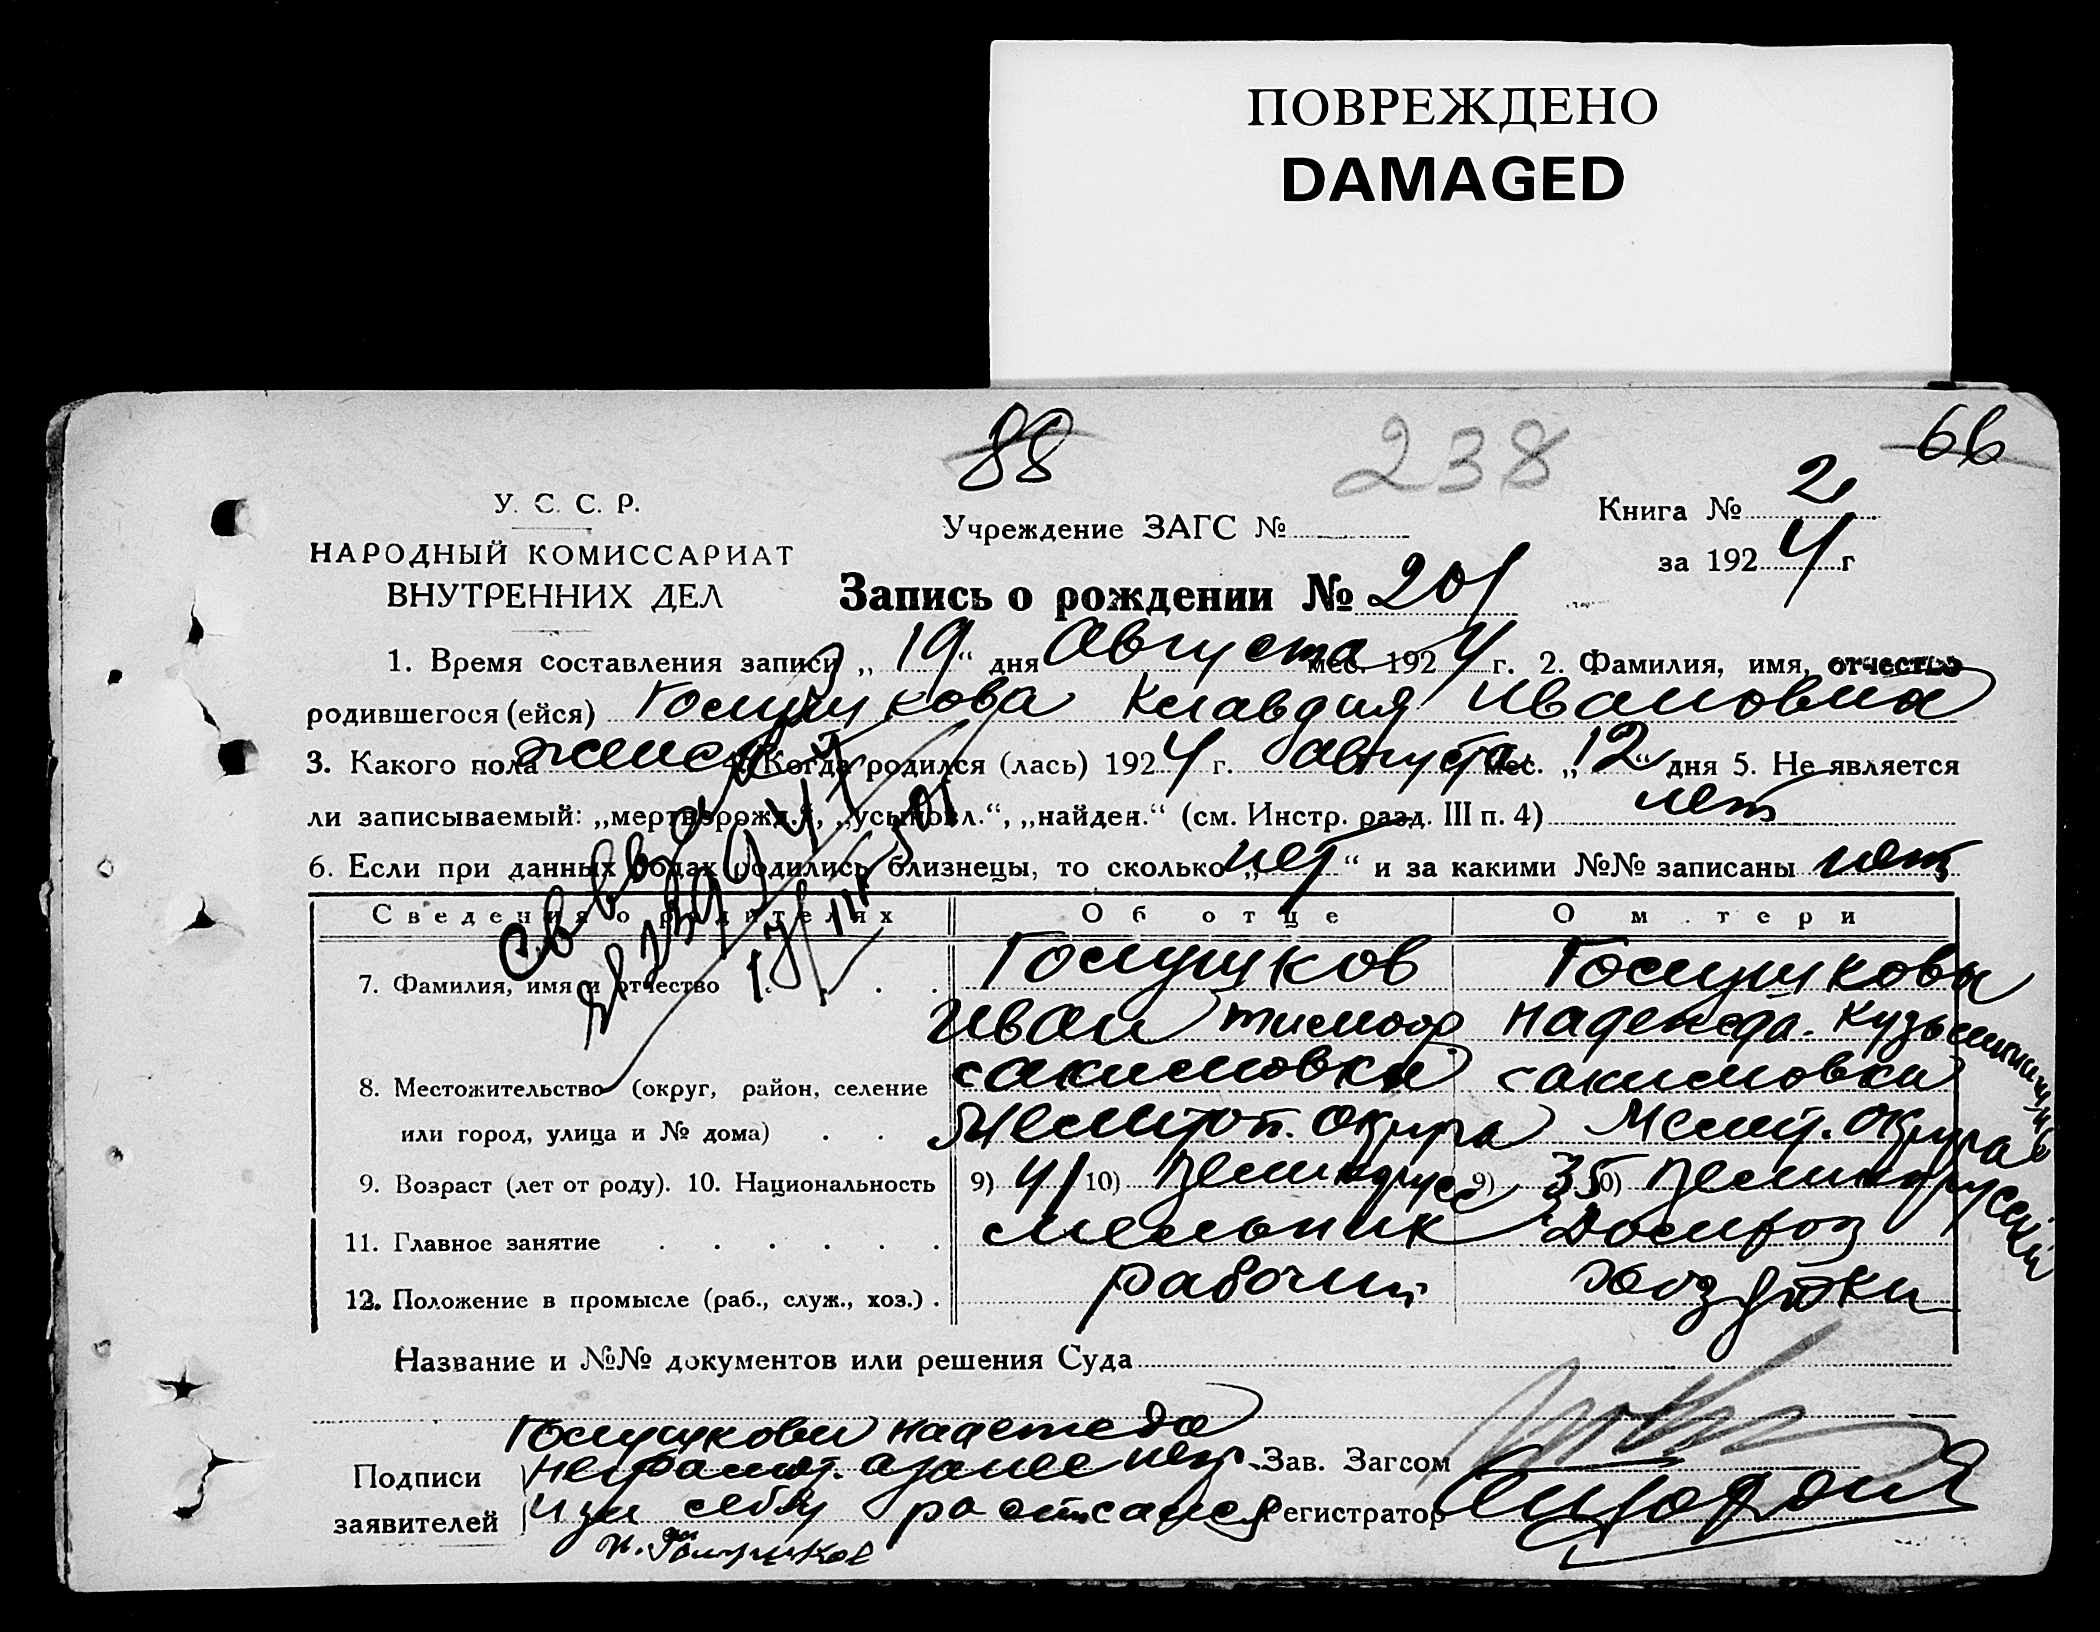 ПОВРЕЖДЕНО
DAMAGED
88
238
66
У. С. С. Р.
НАРОДНЫЙ КОМИССАРИАТ
ВНУТРЕННИХ ДЕЛ
Учреждение ЗАГС №
Книга № 2
за 1924 г
Запись о рождении № 201
1. Время составления записи „ 19 “ дня Августа мес. 1924 г. 2. Фамилия, имя, отчество
родившегося (ейся) Голушкова Клавдия Ивановна
3. Какого пола женск 4. Когда родился (лась) 1924 г. августа мес. „12“ дня 5. Не является
ли записываемый: „мертворожд.“, „усыновл.“, „найден.“ (см. Инстр. разд. III п. 4) нет
6. Если при данных родах родились близнецы, то сколько „нет“ и за какими №№ записаны нет
Сведения о родителях Об отце О м.тери
7. Фамилия, имя и отчество Голушков Голушкова
Иван Тимоф Надежда Кузьминична
8. Местожительство (округ, район, селение Сакимовки Сакимовки
или город, улица и № дома) Мелитоп. Округа Мелит. Округа
9. Возраст (лет от роду). 10. Национальность 9) 41 10) Великорусс 9) 35 10) Великорусский
11. Главное занятие мельник Домохоз
12. Положение в промысле (раб., служ., хоз.) рабочий
Название и №№ документов или решения Суда
Голушкова Надежда
Подписи неграмот. а за нее
заявителей и за себя расписался
И. Голушков
Зав. Загсом
Регистратор